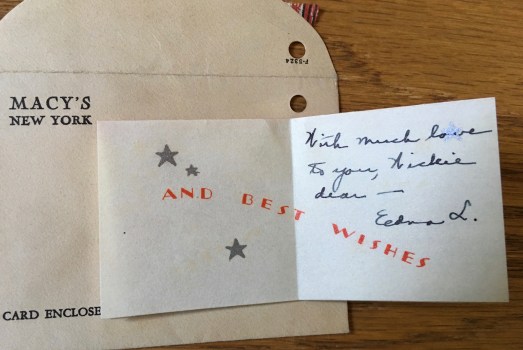 F-5324
MACY'S
NEW YORK
CARD ENCLOSE
AND BEST WISHES
With much love
to you, Hickie
dear —
Eedna L.